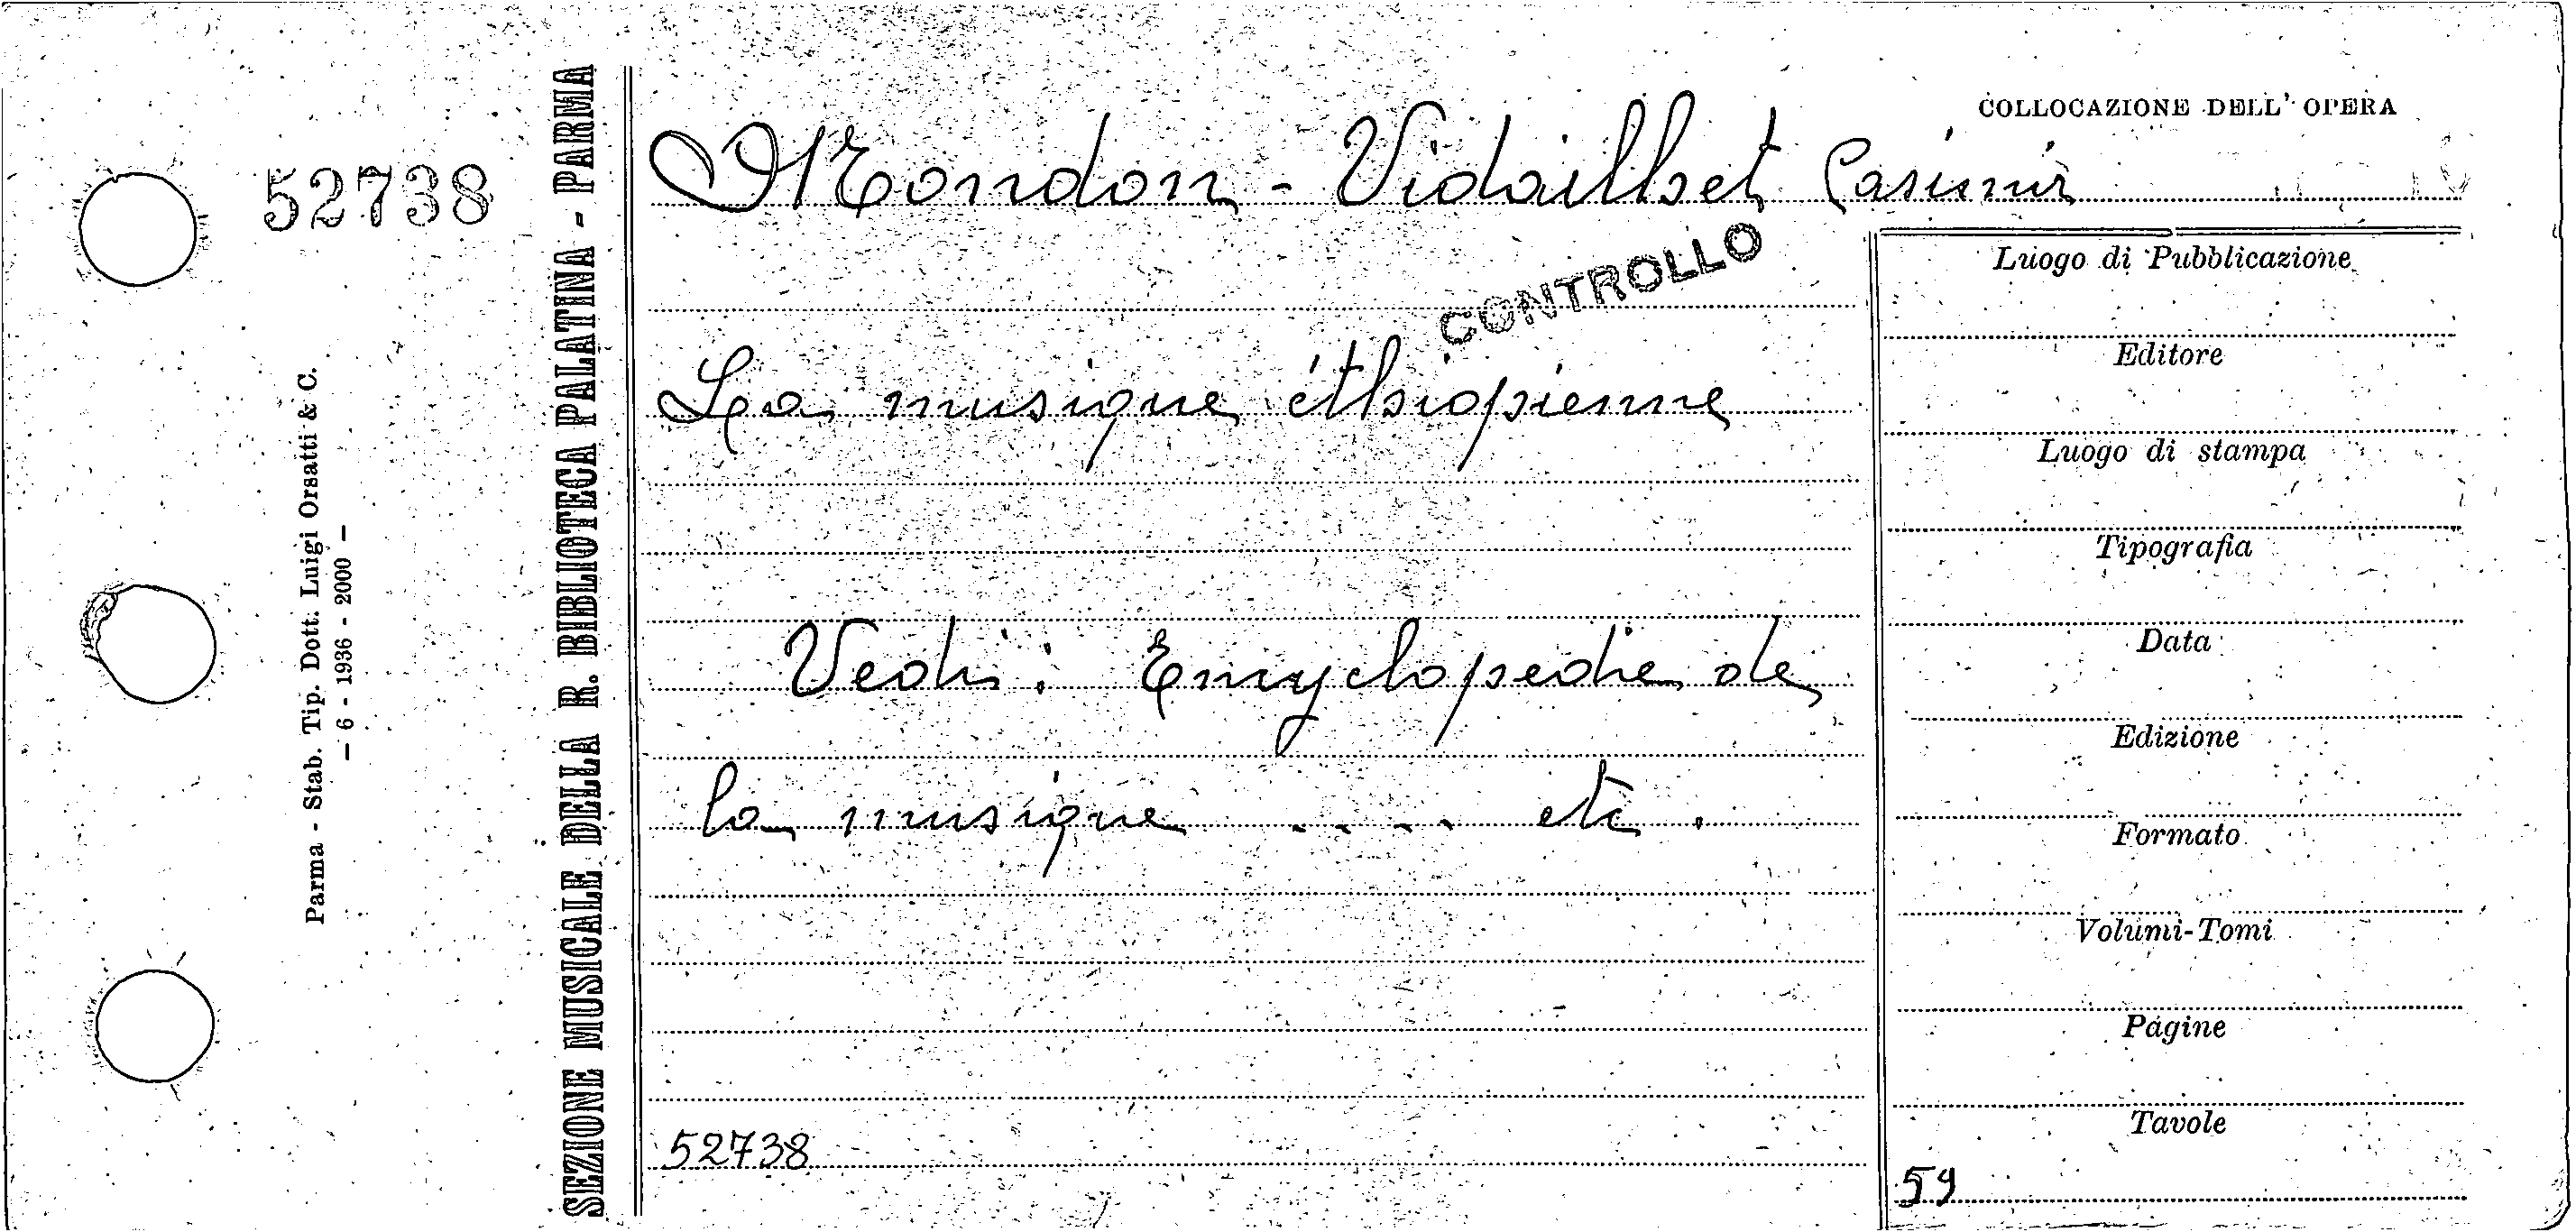 52738
Parma - Stab. Tip. Dott. Luigi Orsatti & C.
— 6 - 1936 - 2000 —
SEZIONE MUSICALE DELLA R. BIBLIOTECA PALATINA - PARMA
COLLOCAZIONE DELL' OPERA
Mondon - Vidailhet Casimir
CONTROLLO
La musique éthiopienne
Vedi: Encyclopedie de
la musique ..... etc.
52738
Luogo di Pubblicazione
Editore
Luogo di stampa
Tipografia
Data
Edizione
Formato
Volumi-Tomi
Pagine
Tavole
59